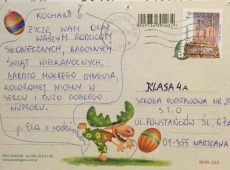 KOCHANI!
ŻYCZĘ WAM ORAZ
WASZYM RODZICOM
SŁONECZNYCH, RADOSNYCH
ŚWIĄT WIELKANOCNYCH,
BARDZO MOKREGO DYNGUSA,
KOLOROWEJ WIOSNY W
SERCU I DUŻO DOBREGO
HUMORU.
p. Ela z rodziną
POLSKA
KLASA 4a
SZKOŁA PODSTAWOWA NR
S.T.O
UL. POWSTAŃCÓW ŚL.
01-355 WARSZAWA